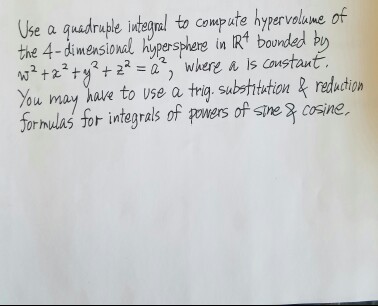 Use a quadruple integral to compute hypervolume of
the 4-dimensional hypersphere in ℝ⁴ bounded by
w² + x² + y² + z² = a², where a is constant.
You may have to use a trig. substitution & reduction
formulas for integrals of powers of sine & cosine.